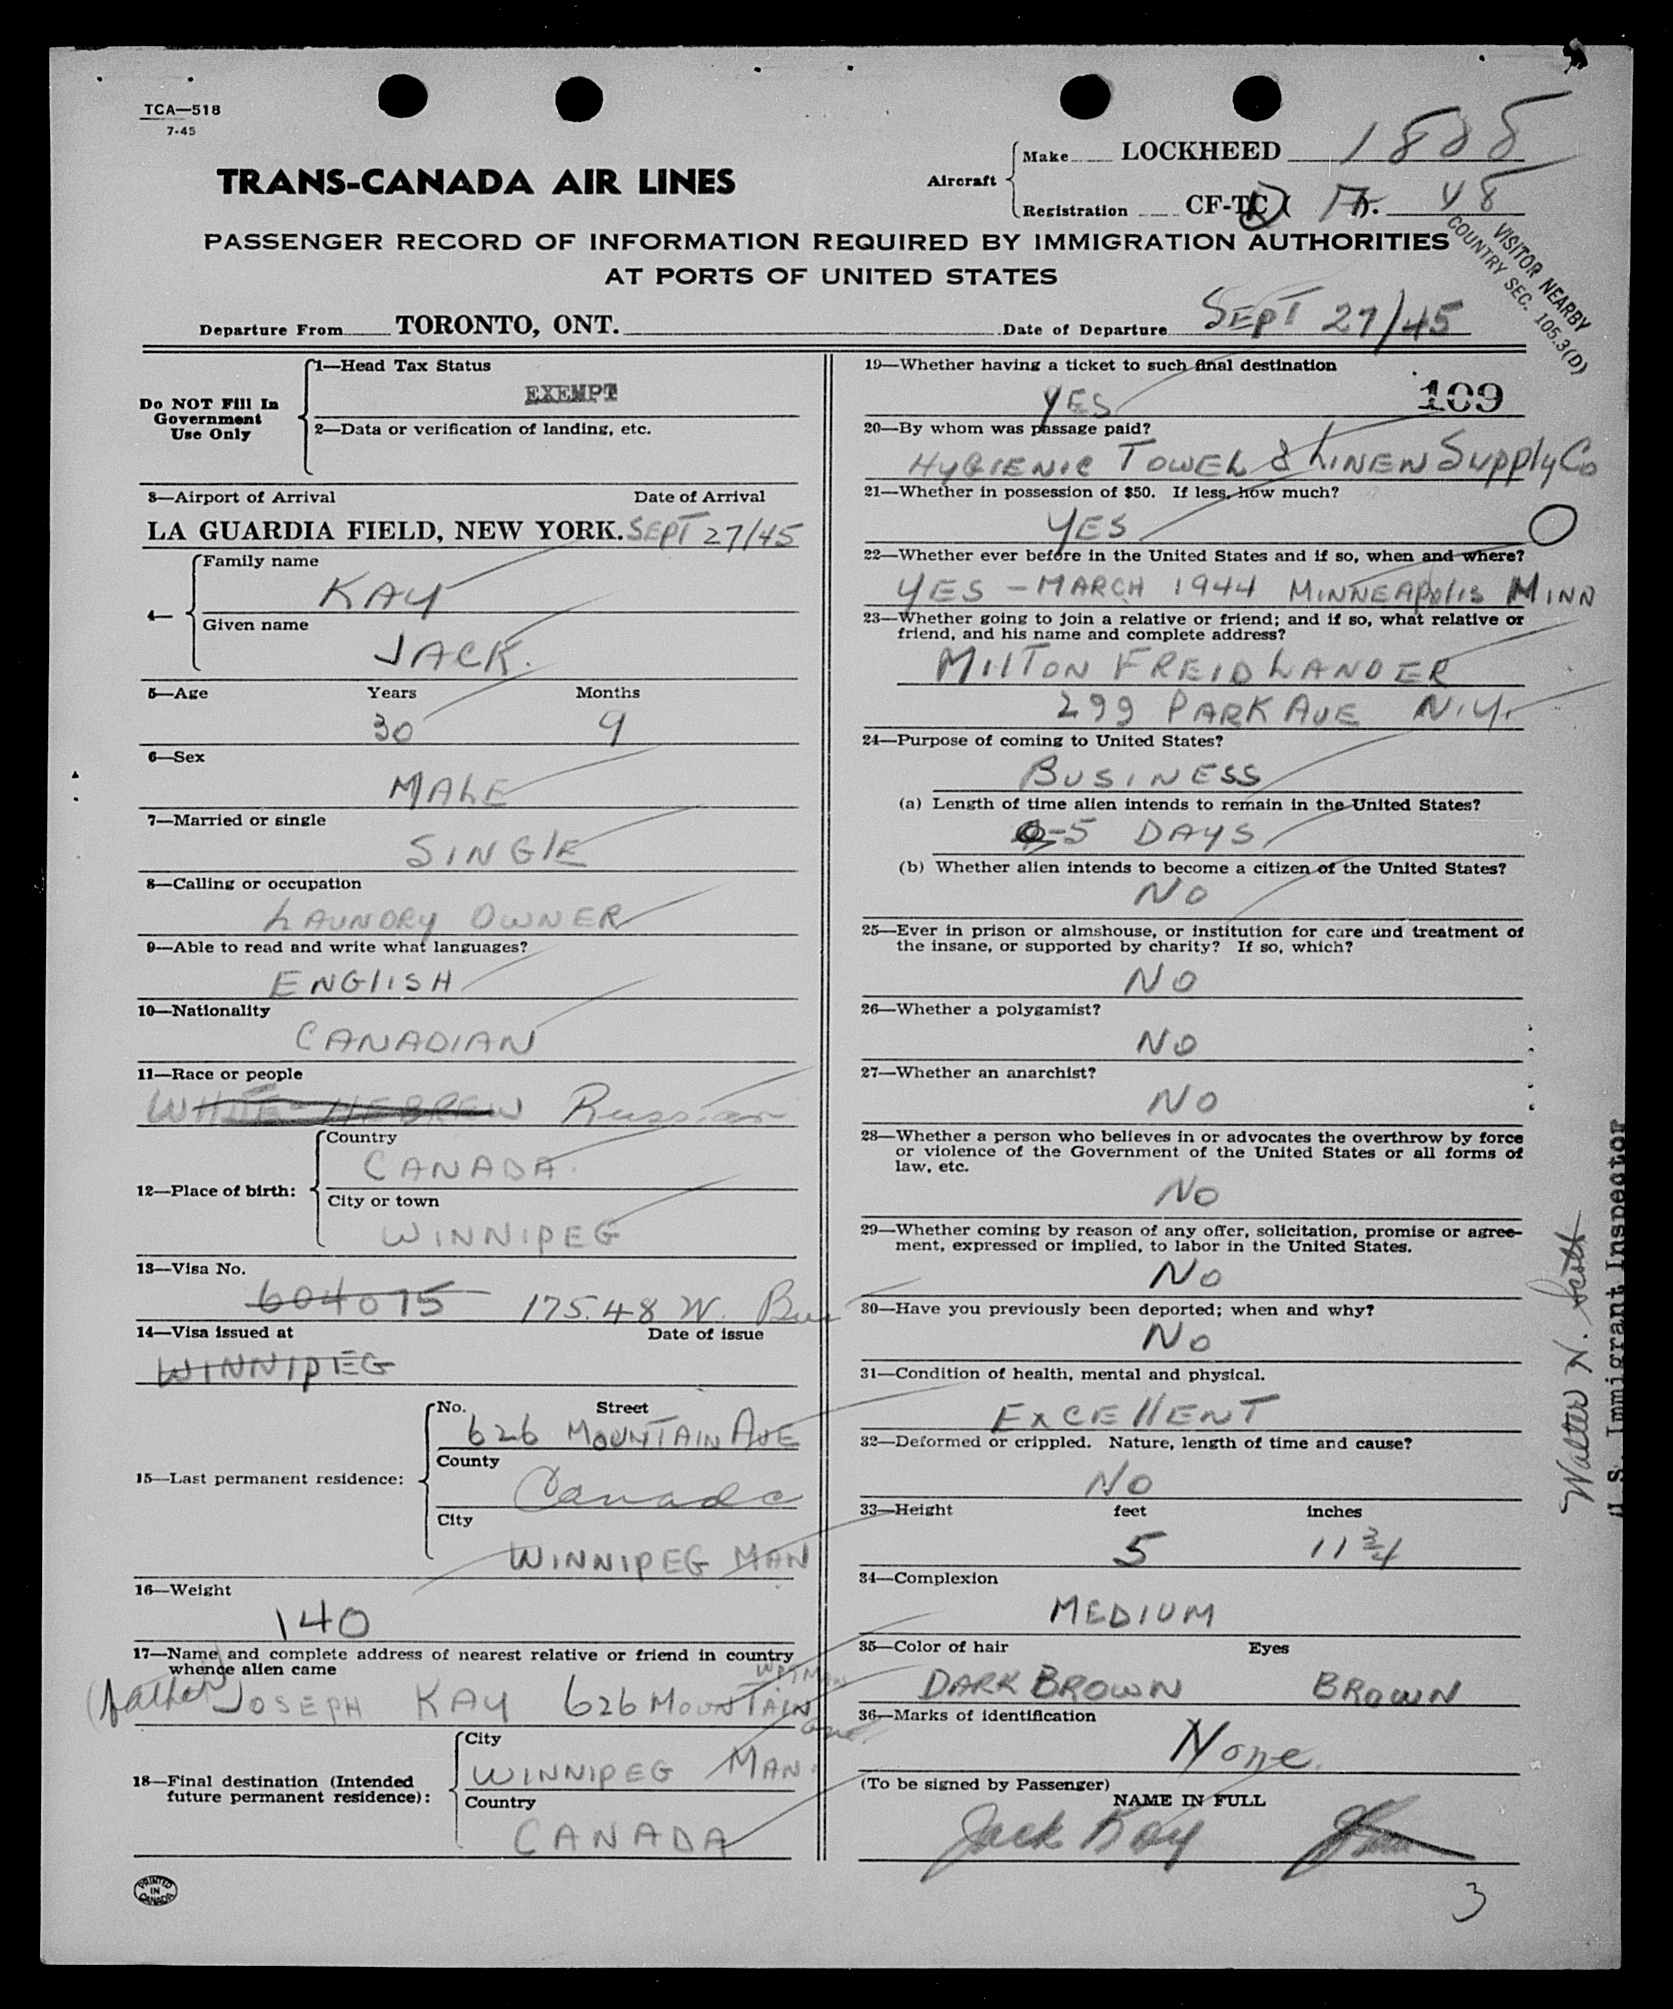 TCA—518
7-45
TRANS-CANADA AIR LINES
Aircraft
Make LOCKHEED 1888
Registration CF-TC ( ). 48
VISITOR NEARBY
COUNTRY SEC. 105.3(D)
PASSENGER RECORD OF INFORMATION REQUIRED BY IMMIGRATION AUTHORITIES
AT PORTS OF UNITED STATES
Departure From TORONTO, ONT. Date of Departure SEPT 27/45
Do NOT Fill In
Government
Use Only
1—Head Tax Status
EXEMPT
2—Data or verification of landing, etc.
3—Airport of Arrival Date of Arrival
LA GUARDIA FIELD, NEW YORK. SEPT 27/45
4—
Family name
KAY
Given name
JACK.
5—Age Years Months
30 9
6—Sex
MALE
7—Married or single
SINGLE
8—Calling or occupation
LAUNDRY OWNER
9—Able to read and write what languages?
ENGLISH
10—Nationality
CANADIAN
11—Race or people
WHITE-HEBREW Russian
12—Place of birth:
Country
CANADA.
City or town
WINNIPEG
13—Visa No.
604075 175.48 W. Bus
14—Visa issued at Date of issue
WINNIPEG
15—Last permanent residence:
No. Street
626 MOUNTAIN AVE
County
Canada
City
WINNIPEG MAN
16—Weight
140
17—Name and complete address of nearest relative or friend in country
whence alien came
(father) JOSEPH KAY 626 MOUNTAIN ave.
WPG MAN
18—Final destination (Intended
future permanent residence):
City
WINNIPEG MAN.
Country
CANADA
PRINTED
IN
CANADA
19—Whether having a ticket to such final destination
YES
109
20—By whom was passage paid?
HYGIENIC TOWEL & LINEN SUPPLY CO
21—Whether in possession of $50. If less, how much?
YES O
22—Whether ever before in the United States and if so, when and where?
YES - MARCH 1944 MINNEAPOLIS MINN
23—Whether going to join a relative or friend; and if so, what relative or
friend, and his name and complete address?
MILTON FREIDLANDER
299 PARK AVE N.Y.
24—Purpose of coming to United States?
BUSINESS
(a) Length of time alien intends to remain in the United States?
5 DAYS
(b) Whether alien intends to become a citizen of the United States?
NO
25—Ever in prison or almshouse, or institution for care and treatment of
the insane, or supported by charity? If so, which?
NO
26—Whether a polygamist?
NO
27—Whether an anarchist?
NO
28—Whether a person who believes in or advocates the overthrow by force
or violence of the Government of the United States or all forms of
law, etc.
NO
29—Whether coming by reason of any offer, solicitation, promise or agree-
ment, expressed or implied, to labor in the United States.
NO
30—Have you previously been deported; when and why?
NO
31—Condition of health, mental and physical.
EXCELLENT
32—Deformed or crippled. Nature, length of time and cause?
NO
33—Height feet inches
5 11 3/4
34—Complexion
MEDIUM
35—Color of hair Eyes
DARK BROWN BROWN
36—Marks of identification
None.
(To be signed by Passenger)
NAME IN FULL
Jack Kay
3
Walter N. Scott
U. S. Immigrant Inspector